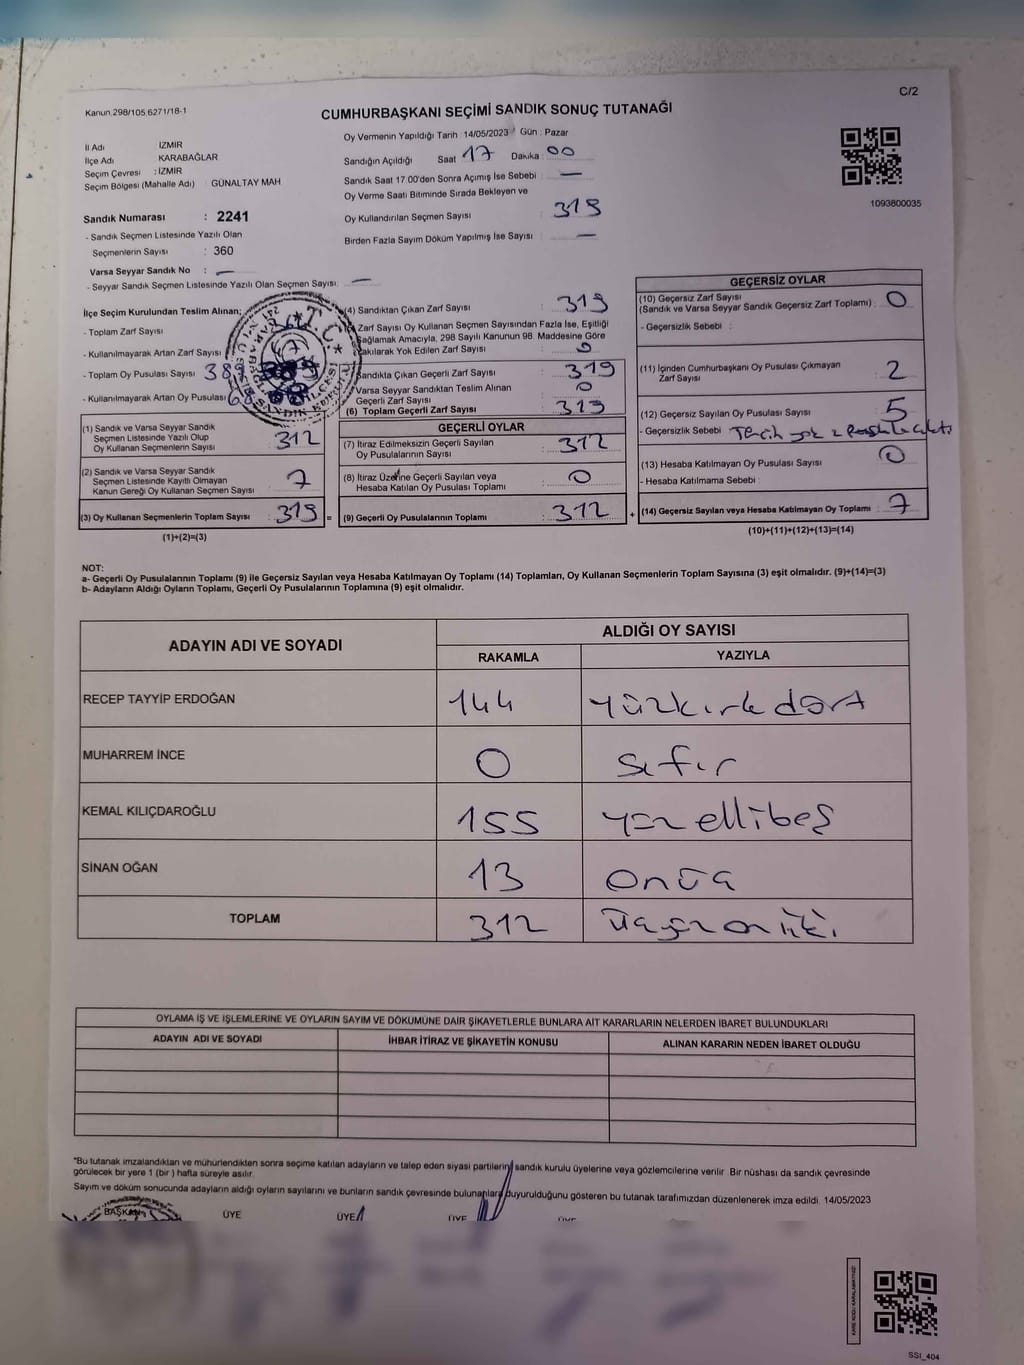 C/2
Kanun.298/105.6271/18-1
CUMHURBAŞKANI SEÇİMİ SANDIK SONUÇ TUTANAĞI
İl Adı İZMİR
İlçe Adı KARABAĞLAR
Seçim Çevresi : İZMİR
Seçim Bölgesi (Mahalle Adı) : GÜNALTAY MAH
Sandık Numarası : 2241
- Sandık Seçmen Listesinde Yazılı Olan
Seçmenlerin Sayısı : 360
Varsa Seyyar Sandık No : —
- Seyyar Sandık Seçmen Listesinde Yazılı Olan Seçmen Sayısı: —
Oy Vermenin Yapıldığı Tarih 14/05/2023 Gün : Pazar
Sandığın Açıldığı Saat 17 Dakika : 00
Sandık Saat 17.00'den Sonra Açımış İse Sebebi : —
Oy Verme Saati Bitiminde Sırada Bekleyen ve
Oy Kullandırılan Seçmen Sayısı : 319
Birden Fazla Sayım Döküm Yapılmış İse Sayısı : —
1093800035
İlçe Seçim Kurulundan Teslim Alınan;
- Toplam Zarf Sayısı
- Kullanılmayarak Artan Zarf Sayısı
- Toplam Oy Pusulası Sayısı
- Kullanılmayarak Artan Oy Pusulası
(1) Sandık ve Varsa Seyyar Sandık
Seçmen Listesinde Yazılı Olup
Oy Kullanan Seçmenlerin Sayısı : 312
(2) Sandık ve Varsa Seyyar Sandık
Seçmen Listesinde Kayıtlı Olmayan
Kanun Gereği Oy Kullanan Seçmen Sayısı : 7
(3) Oy Kullanan Seçmenlerin Toplam Sayısı : 319 =
(1)+(2)=(3)
(4) Sandıktan Çıkan Zarf Sayısı : 319
Zarf Sayısı Oy Kullanan Seçmen Sayısından Fazla İse, Eşitliği
Sağlamak Amacıyla, 298 Sayılı Kanunun 98. Maddesine Göre
Yakılarak Yok Edilen Zarf Sayısı :
Sandıkta Çıkan Geçerli Zarf Sayısı : 319
Varsa Seyyar Sandıktan Teslim Alınan
Geçerli Zarf Sayısı : 0
(6) Toplam Geçerli Zarf Sayısı : 319
GEÇERLİ OYLAR
(7) İtiraz Edilmeksizin Geçerli Sayılan
Oy Pusulalarının Sayısı : 312
(8) İtiraz Üzerine Geçerli Sayılan veya
Hesaba Katılan Oy Pusulası Toplamı : 0
(9) Geçerli Oy Pusulalarının Toplamı : 312 +
GEÇERSİZ OYLAR
(10) Geçersiz Zarf Sayısı
(Sandık ve Varsa Seyyar Sandık Geçersiz Zarf Toplamı) : 0
- Geçersizlik Sebebi :
(11) İçinden Cumhurbaşkanı Oy Pusulası Çıkmayan
Zarf Sayısı : 2
(12) Geçersiz Sayılan Oy Pusulası Sayısı : 5
- Geçersizlik Sebebi : Tercih yok 2
(13) Hesaba Katılmayan Oy Pusulası Sayısı : 0
- Hesaba Katılmama Sebebi :
(14) Geçersiz Sayılan veya Hesaba Katılmayan Oy Toplamı : 7
(10)+(11)+(12)+(13)=(14)
NOT:
a- Geçerli Oy Pusulalarının Toplamı (9) ile Geçersiz Sayılan veya Hesaba Katılmayan Oy Toplamı (14) Toplamları, Oy Kullanan Seçmenlerin Toplam Sayısına (3) eşit olmalıdır. (9)+(14)=(3)
b- Adayların Aldığı Oyların Toplamı, Geçerli Oy Pusulalarının Toplamına (9) eşit olmalıdır.
ADAYIN ADI VE SOYADI
ALDIĞI OY SAYISI
RAKAMLA YAZIYLA
RECEP TAYYİP ERDOĞAN 144 yüzkırkdört
MUHARREM İNCE 0 sıfır
KEMAL KILIÇDAROĞLU 155 yüzellibeş
SİNAN OĞAN 13 onüç
TOPLAM 312 üçyüzoniki
OYLAMA İŞ VE İŞLEMLERİNE VE OYLARIN SAYIM VE DÖKÜMÜNE DAİR ŞİKAYETLERLE BUNLARA AİT KARARLARIN NELERDEN İBARET BULUNDUKLARI
ADAYIN ADI VE SOYADI İHBAR İTİRAZ VE ŞİKAYETİN KONUSU ALINAN KARARIN NEDEN İBARET OLDUĞU
"Bu tutanak imzalandıktan ve mühürlendikten sonra seçime katılan adayların ve talep eden siyasi partilerin sandık kurulu üyelerine veya gözlemcilerine verilir. Bir nüshası da sandık çevresinde
görülecek bir yere 1 (bir ) hafta süreyle asılır.
Sayım ve döküm sonucunda adayların aldığı oyların sayılarını ve bunların sandık çevresinde bulunanlara duyurulduğunu gösteren bu tutanak tarafımızdan düzenlenerek imza edildi. 14/05/2023
BAŞKAN ÜYE ÜYE ÜYE ÜYE
SSI_404